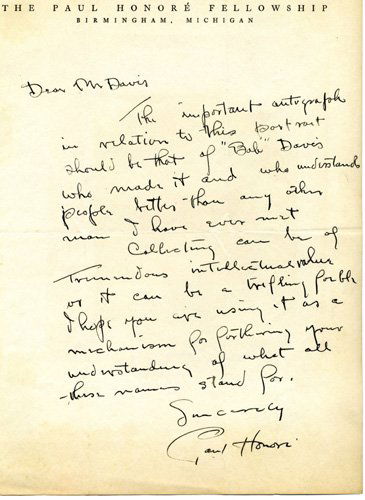 THE PAUL HONORÉ FELLOWSHIP
BIRMINGHAM, MICHIGAN
Dear Mr Davis
The important autograph
in relation to this portrait
should be that of "Bob" Davis
who made it and who understands
people better than any other
man I have ever met
Collecting can be of
Tremendous intellectual value
or it can be a trifling foible
I hope you are using it as a
mechanism for furthering your
understanding of what all
these names stand for.
Sincerely
Paul Honoré